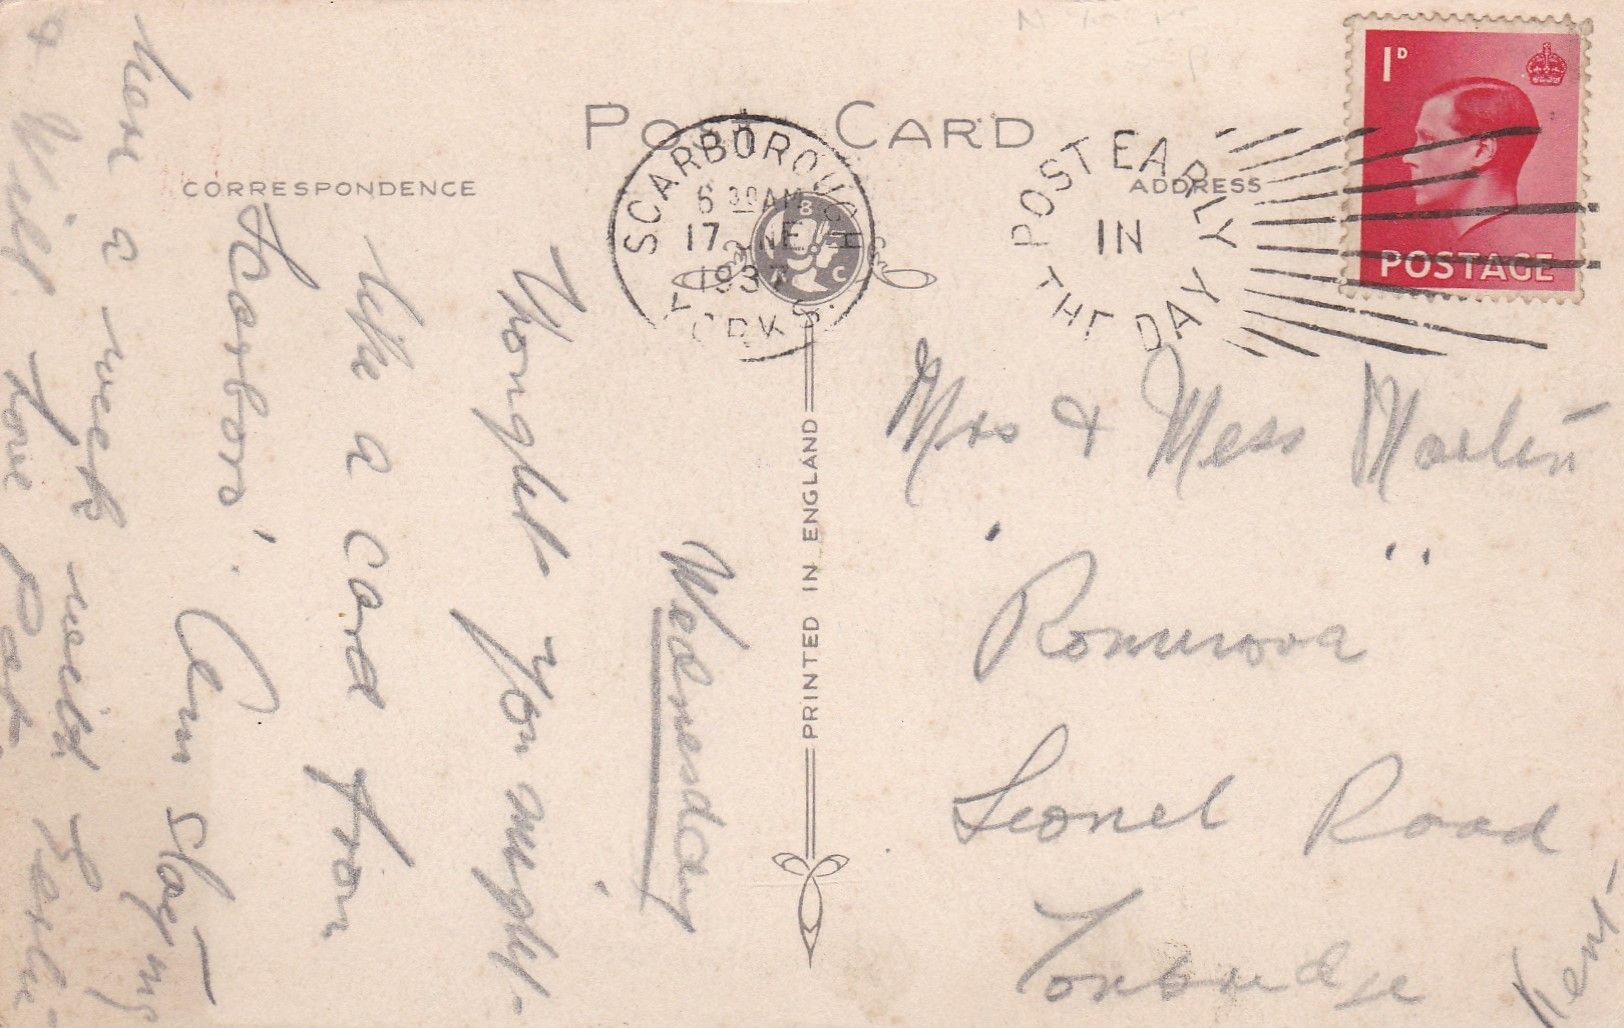 POST CARD
CORRESPONDENCE
ADDRESS
SCARBOROUGH
6 30 AM
17 JNE
1937
YORKS.
POST EARLY
IN
THE DAY
1D
POSTAGE
B
C
PRINTED IN ENGLAND
Wednesday
Thought you might
like a card from
Scarboro'. Am staying
here a week with Leslie
& Will. Love Pat.
Mrs & Miss Martin
Lionel Road
Tonbridge
Kent